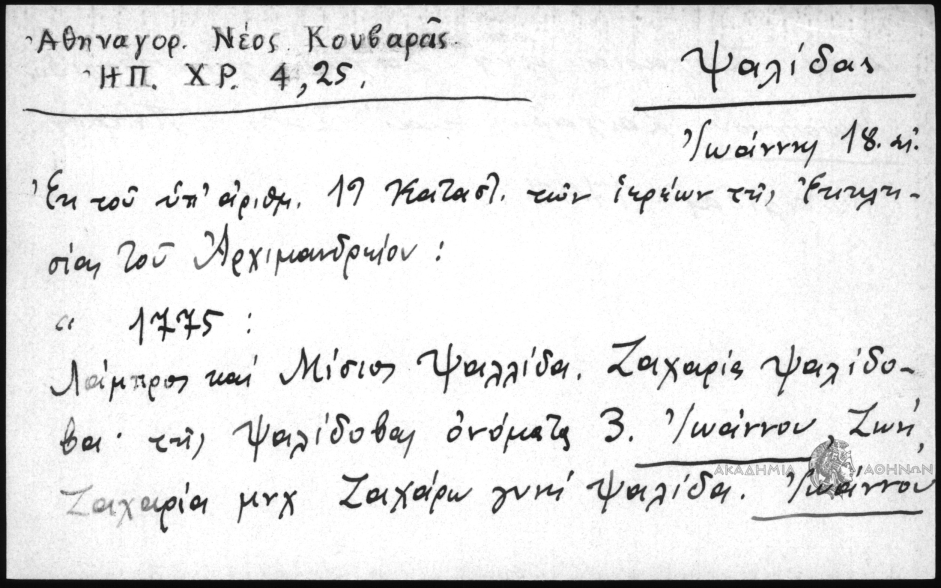 Ἀθηναγορ. Νέος Κουβαρᾶς
ΗΠ. ΧΡ. 4, 25.
Ψαλίδας
Ἰωάννη 18. αἰ.
Ἐκ τοῦ ὑπ' ἀριθμ. 19 Καταστ. τῶν ἱερέων τῆς Ἐκκλη-
σίας τοῦ Ἀρχιμανδρείου :
“ 1775 :
Λάμπρος καί Μίσιος Ψαλλίδα. Ζαχαρίας Ψαλίδο-
βας· τῆς Ψαλίδοβας ὀνόματα 3. Ἰωάννου, Ζωή,
ΑΚΑΔΗΜΙΑ ΑΘΗΝΩΝ
Ζαχαρία μνχ Ζαχάρω γυνή Ψαλίδα. Ἰωάννου